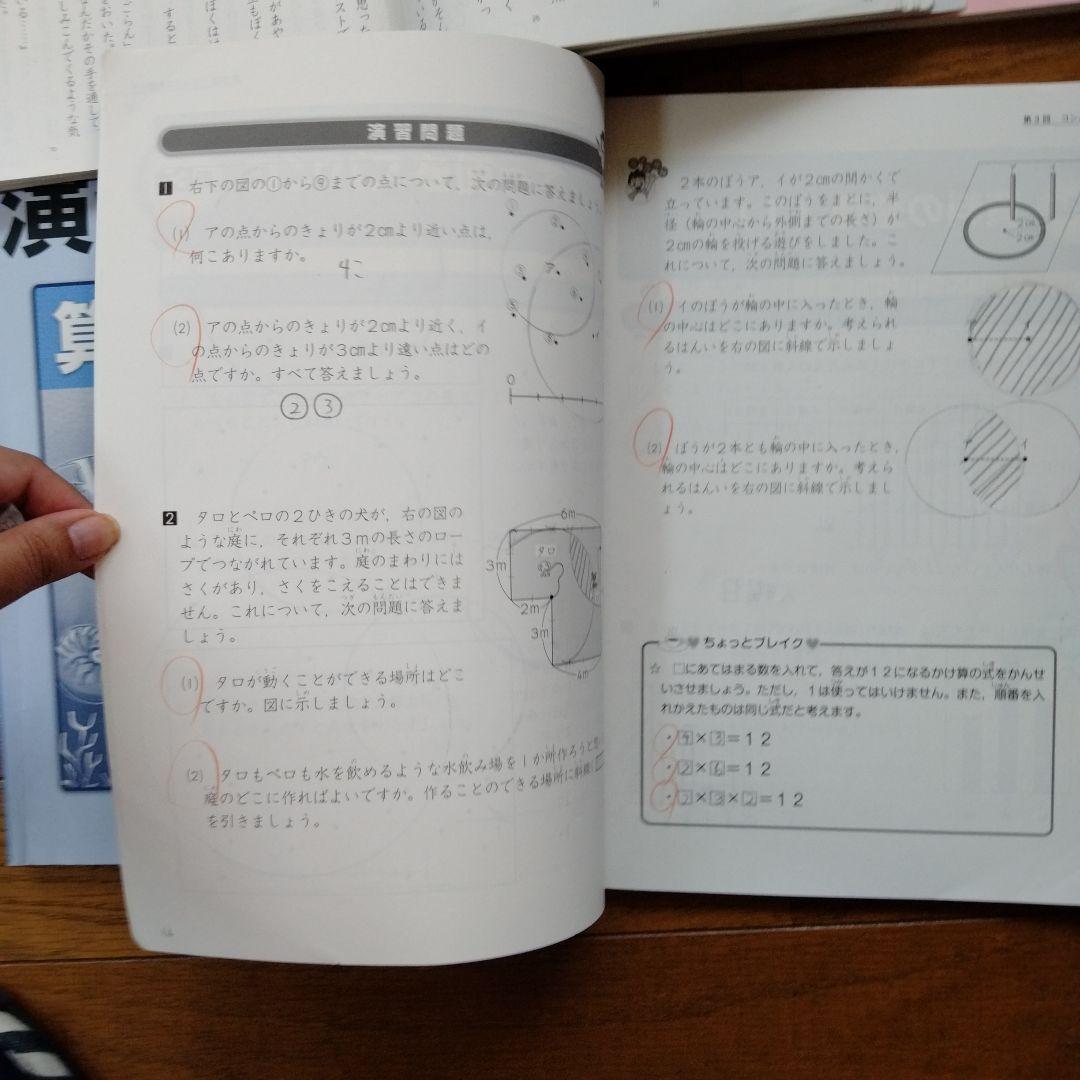 ごらん」
おいた。
なんだかその手を通して
しみこんでくるような気
いる……」
すると
演
算
演習問題
1 右下の図の①から⑨までの点について，次の問題に答えましょう
(1) アの点からのきょりが2cmより近い点は，
何こありますか。
4こ
(2) アの点からのきょりが2cmより近く，イ
の点からのきょりが3cmより遠い点はどの
点ですか。すべて答えましょう。
② ③
0
2 タロとペロの2ひきの犬が，右の図の
ような庭に，それぞれ3mの長さのロー
プでつながれています。庭のまわりには
さくがあり，さくをこえることはできま
せん。これについて，次の問題に答えま
しょう。
6m
タロ
3m
2m
3m
4m
(1) タロが動くことができる場所はどこ
ですか。図に示しましょう。
(2) タロもペロも水を飲めるような水飲み場を1か所作ろうと
庭のどこに作ればよいですか。作ることのできる場所に斜線
を引きましょう。
第3回 コン
2本のぼうア，イが2cmの間かくで
立っています。このぼうをまとに，半
径（輪の中心から外側までの長さ）が
2cmの輪を投げる遊びをしました。こ
れについて，次の問題に答えましょう。
2cm
2cm
(1) イのぼうが輪の中に入ったとき，輪
の中心はどこにありますか。考えられ
るはんいを右の図に斜線で示しましょ
う。
(2) ぼうが2本とも輪の中に入ったとき，
輪の中心はどこにありますか。考えら
れるはんいを右の図に斜線で示しまし
ょう。
ア イ
ちょっとブレイク
☆ □にあてはまる数を入れて，答えが12になるかけ算の式をかんせ
いさせましょう。ただし，1は使ってはいけません。また，順番を入
れかえたものは同じ式だと考えます。
・4×3=12
・2×6=12
・2×3×2=12